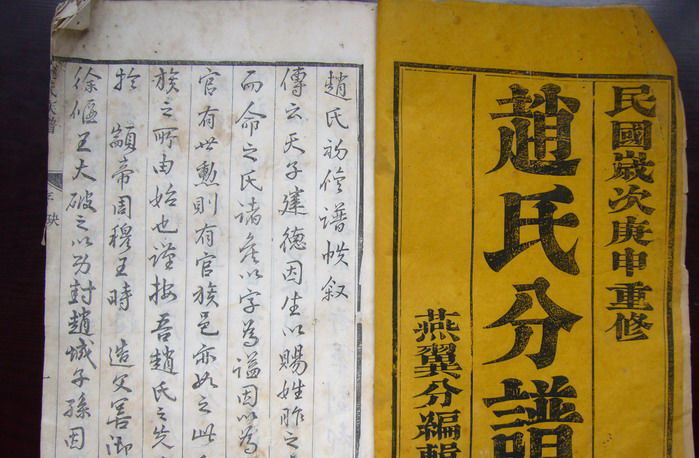 民國歲次庚申重修
趙氏分譜
燕翼分編輯
趙氏初修譜帙叙
傳云天子建德因生以賜姓胙之
而命之氏諸矦以字為謚因以為
官有世勲則有官族邑亦如之此
族之所由始也谨按吾趙氏之先
於 顓帝周穆王時 造父善御
徐偃王大破之以功封趙城子孫因